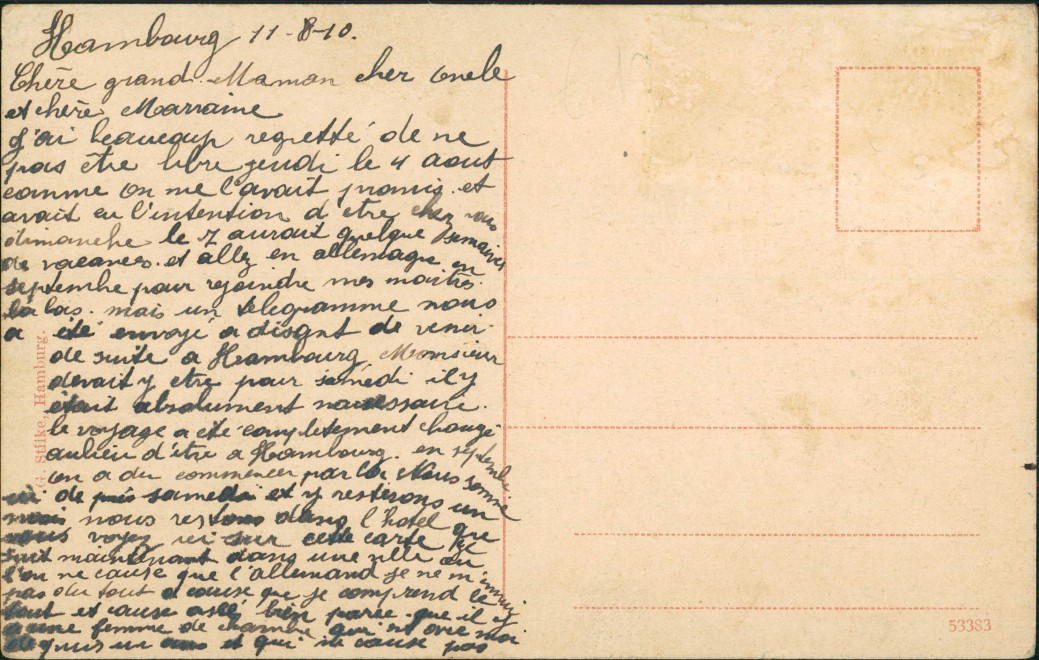 Hambourg 11-8-10.
Chère grand-Maman cher oncle
et chère Marraine
J'ai beaucoup regretté de ne
pas être libre jeudi le 4 aout
comme on me l'avait promis et
avait eu l'intention d'etre chez vous
dimanche le 7 aurait quelque semaines
de vacances et allez en allemagne en
septembre pour rejoindre mes maitres
la bas. mais un telegramme nous
a été envoyé a disant de venir
de suite a Hambourg Monsieur
devait y etre pour samedi il y
était absolument necessaire.
le voyage a été completement changé
aulieu d'être a Hambourg en septembre
on a du commencer par la Nous somme
ici depuis samedi et y resterons un
mois nous restons dans l'hotel que
vous voyez ici sur cette carte Je
suit maintenant dans une ville ou
l'on ne cause que l'allemand je ne m'ennui
pas du tout a cause que je comprend le
tout et cause assé bien parce que il y
a une femme de chambre qui est avec moi
depuis un ans et qui ne cause pas
G. Stilke, Hamburg.
53383